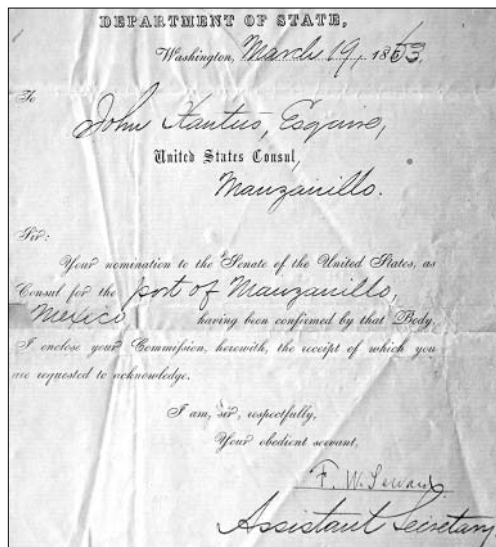 DEPARTMENT OF STATE,
Washington, March 19, 1863.
To
John Xantus, Esquire,
United States Consul,
Manzanillo.
Sir:
Your nomination to the Senate of the United States, as
Consul for the port of Manzanillo,
Mexico having been confirmed by that Body,
I enclose your Commission, herewith, the receipt of which you
are requested to acknowledge.
I am, sir, respectfully,
Your obedient servant,
F. W. Seward
Assistant Secretary